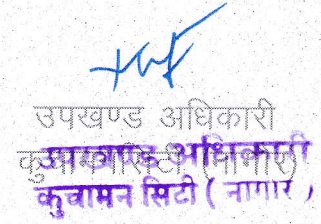 उपखण्ड अधिकारी
उपखण्ड अधिकारी
कुचामन सिटी ( नागौर )